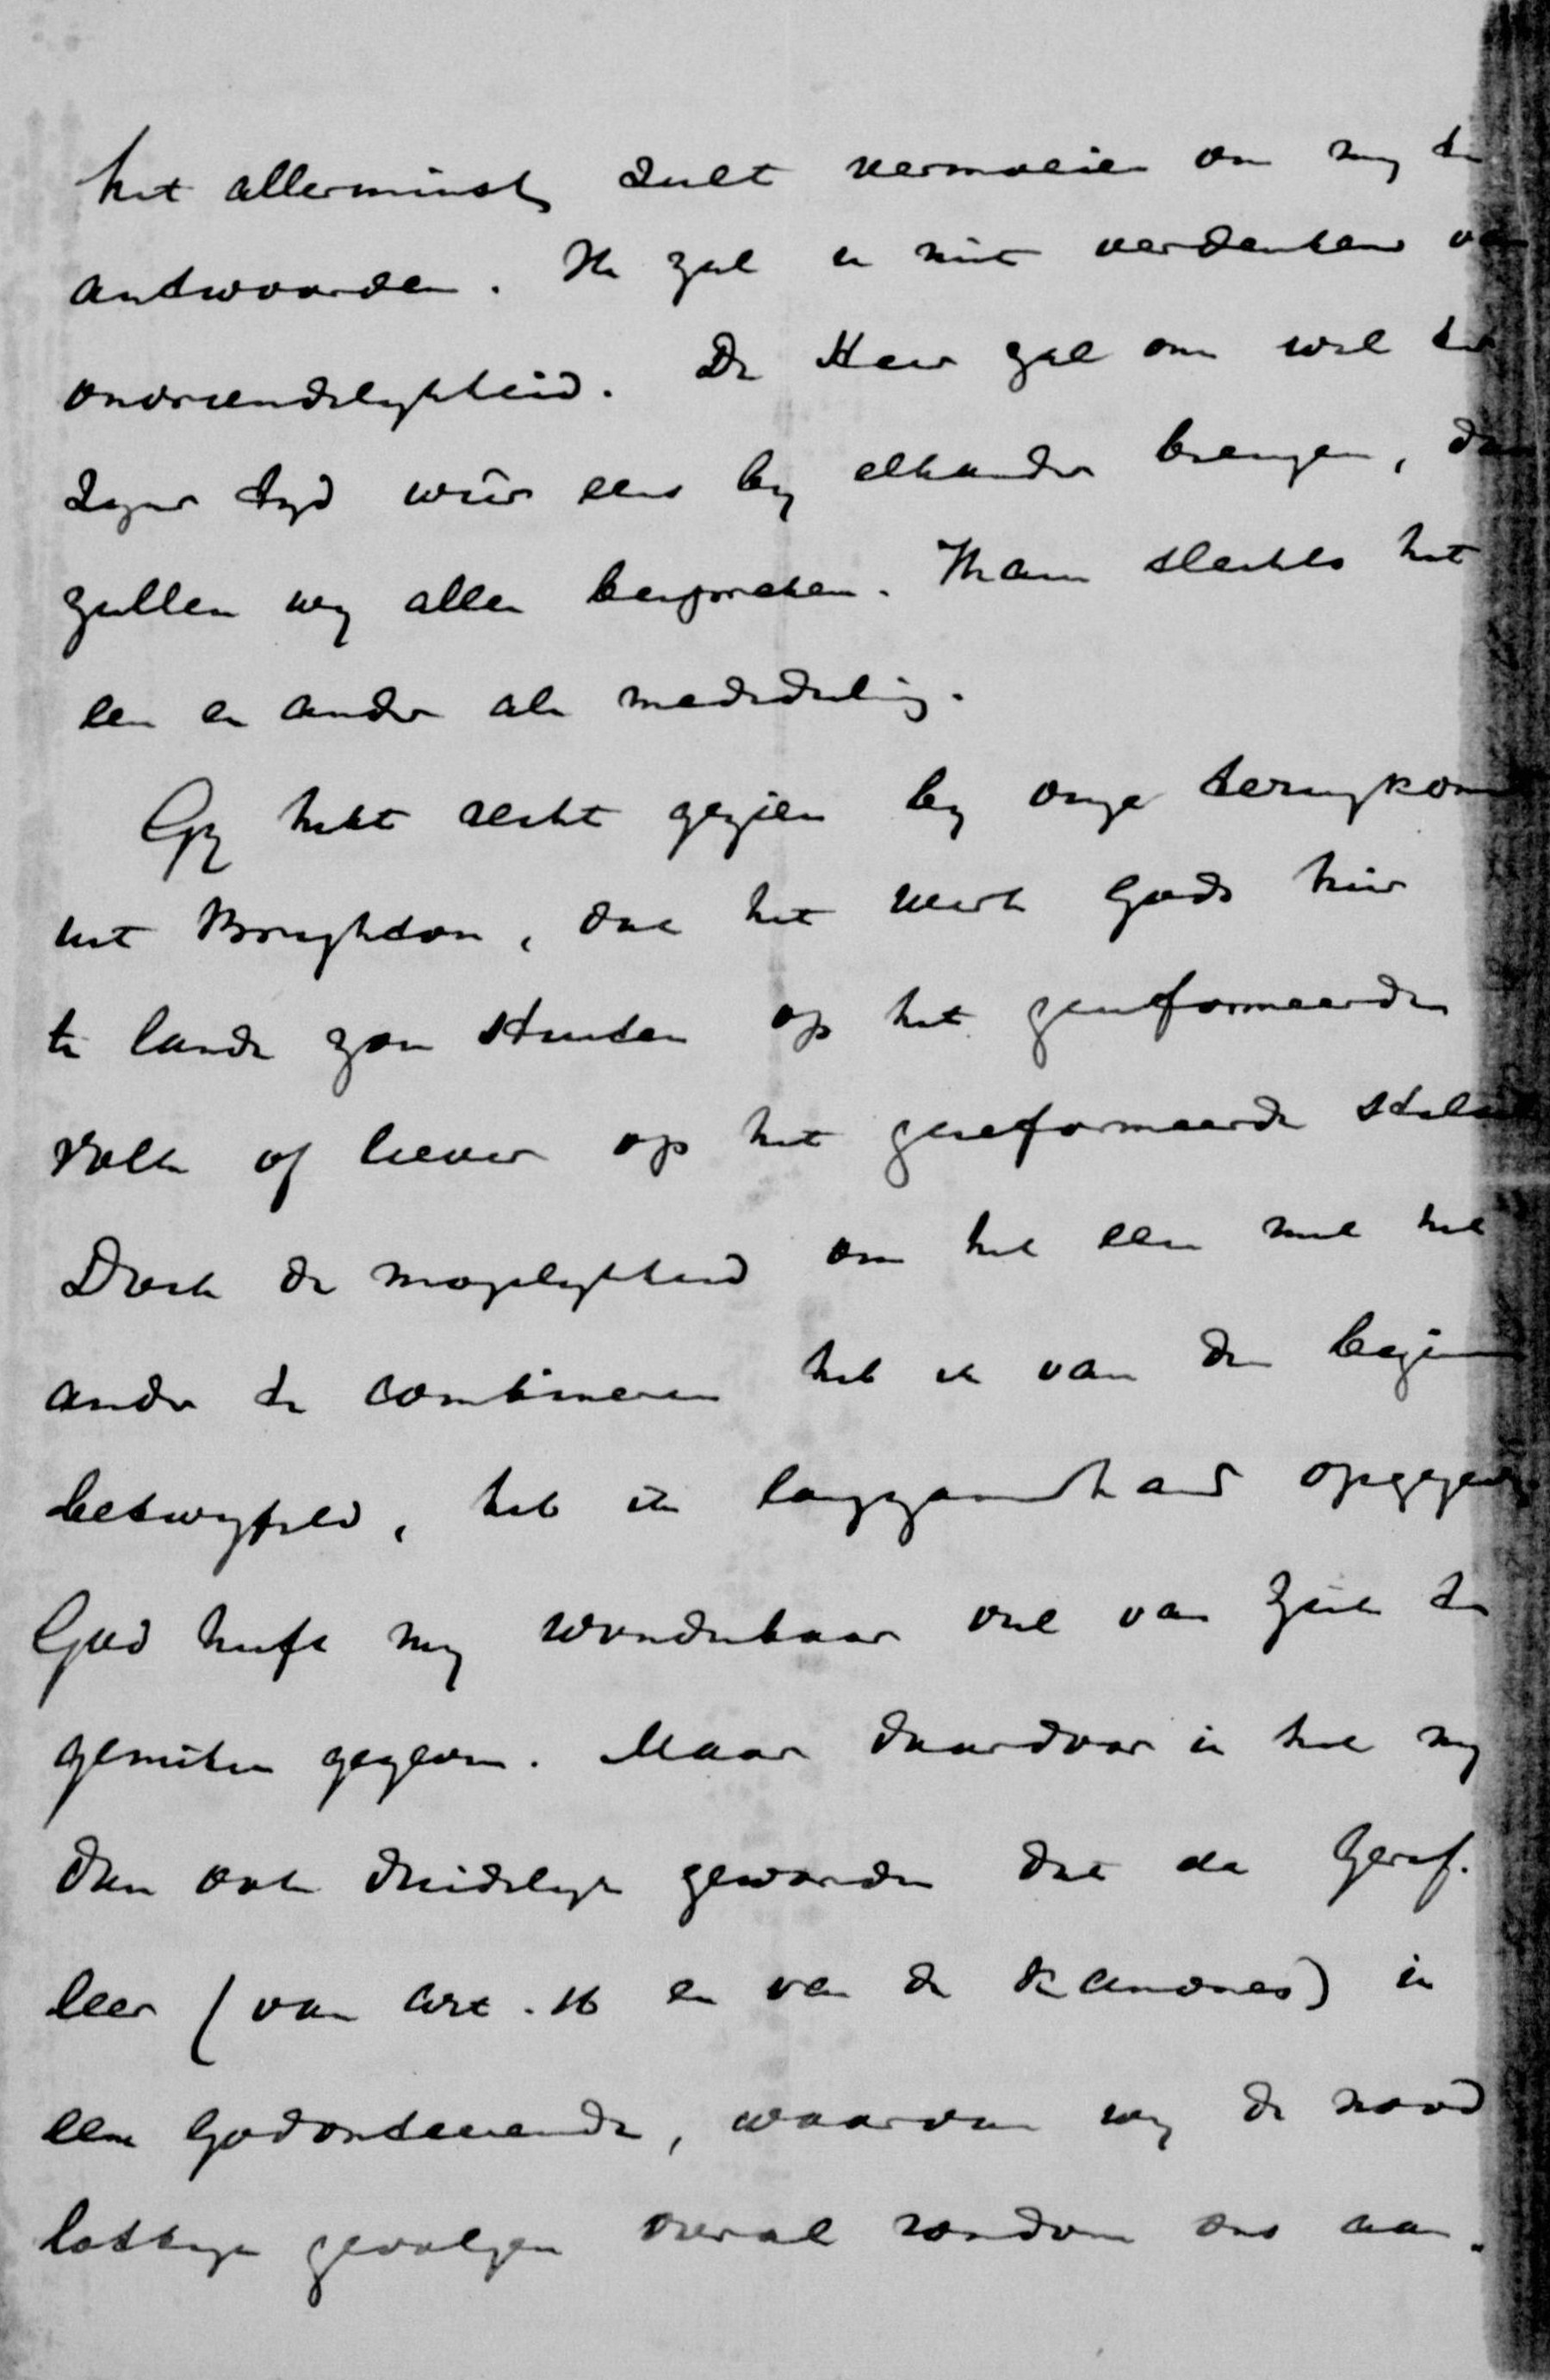 het allerminst zult vermoeien om my te
antwoorden. Ik zal u niet verdenken van
onvriendelykheid. De Heer zal ons wel te
zyner tyd weêr eens by elkander brengen, dan
zullen wy alles bespreken. Neem slechts het
een en ander als mededeeling.
Gy hebt recht gezien by onze terugkomst
uit Brighton, dat het werk Gods hier
te lande zou stuiten op het gereformeerde
volk of liever op het gereformeerde stelsel
Doch de mogelykheid om het een met het
ander te combineren heb ik van den begin
betwyfeld, heb ik langzamerhand opgegeven
God heeft my wonderbaar veel van Zich te
genieten gegeven. Maar daardoor is het my
dan ook duidelyk geworden dat de Geref.
leer (van Art. 16 en van de Kanones) is
een Godonteerende, waarvan wy de nood
lottige gevolgen overal rondom ons aan.